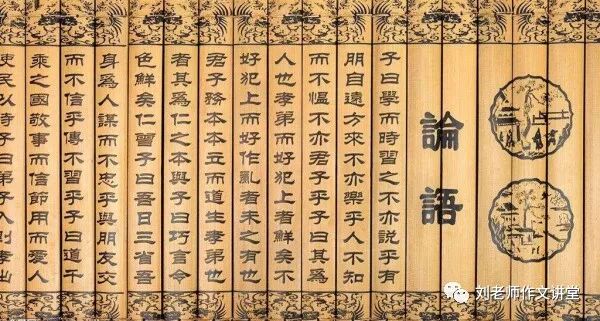 論語
子曰學而時習之不亦說乎有
朋自遠方來不亦樂乎人不知
而不慍不亦君子乎子曰其爲
人也孝弟而好犯上者鮮矣不
好犯上而好作亂者未之有也
君子務本本立而道生孝弟也
者其爲仁之本與子曰巧言令
色鮮矣仁曾子曰吾日三省吾
身爲人謀而不忠乎與朋友交
而不信乎傳不習乎子曰道千
乘之國敬事而信節用而愛人
使民以時子曰弟子入則孝出
刘老师作文讲堂